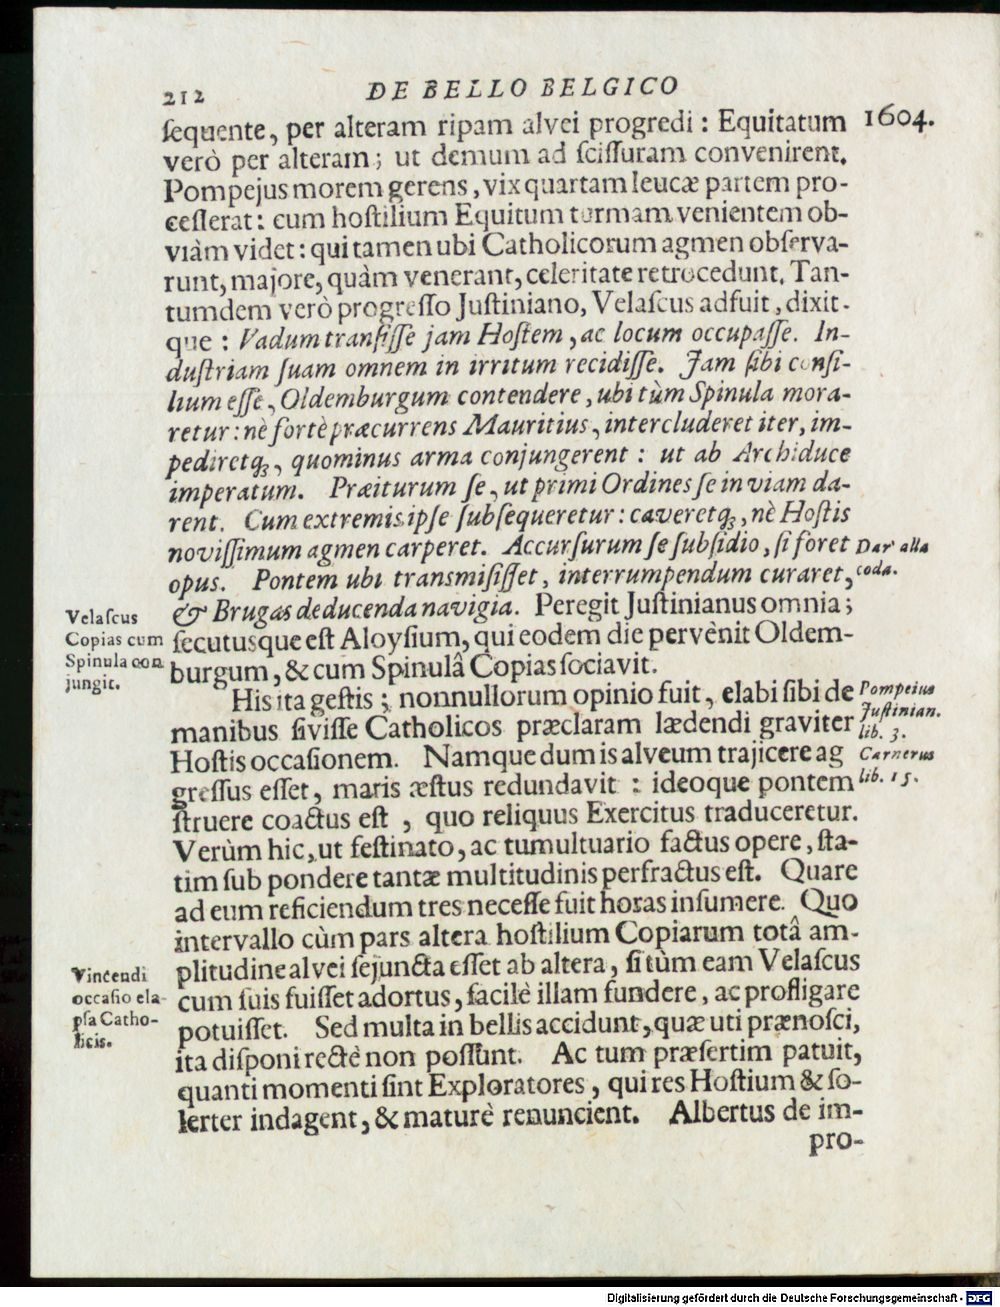 212 DE BELLO BELGICO
ſequente, per alteram ripam alvei progredi : Equitatum 1604.
verò per alteram; ut demum ad ſciſſuram convenirent.
Pompejus morem gerens, vix quartam leucæ partem pro-
ceſſerat: cum hoſtilium Equitum turmam venientem ob-
viàm videt: qui tamen ubi Catholicorum agmen obſerva-
runt, majore, quàm venerant, celeritate retrocedunt. Tan-
tumdem verò progreſſo Juſtiniano, Velaſcus adfuit, dixit-
que : Vadum tranſiſſe jam Hoſtem, ac locum occupaſſe. In-
duſtriam ſuam omnem in irritum recidiſſe. Jam ſibi conſi-
lium eſſe, Oldemburgum contendere, ubi tùm Spinula mora-
retur: nè fortè præcurrens Mauritius, intercluderet iter, im-
pediretq́;, quominus arma conjungerent : ut ab Archiduce
imperatum. Præiturum ſe, ut primi Ordines ſe in viam da-
rent. Cum extremis ipſe ſubſequeretur: caveretq́;, nè Hoſtis
noviſſimum agmen carperet. Accurſurum ſe ſubſidio, ſi foret
Dar' alla
coda.
opus. Pontem ubi transmiſiſſet, interrumpendum curaret,
& Brugas deducenda navigia. Peregit Juſtinianus omnia;
Velaſcus
Copias cum
Spinula con
jungit.
ſecutusque eſt Aloyſium, qui eodem die pervènit Oldem-
burgum, & cum Spinulâ Copias ſociavit.
His ita geſtis ; nonnullorum opinio fuit, elabi ſibi de
Pompeius
Juſtinian.
lib. 3.
Carnerus
lib. 15.
manibus ſiviſſe Catholicos præclaram lædendi graviter
Hoſtis occaſionem. Namque dum is alveum trajicere ag
greſſus eſſet, maris æſtus redundavit : ideoque pontem
ſtruere coactus eſt , quo reliquus Exercitus traduceretur.
Verùm hic, ut feſtinato, ac tumultuario factus opere, ſta-
tim ſub pondere tantæ multitudinis perfractus eſt. Quare
ad eum reficiendum tres neceſſe fuit horas inſumere. Quo
intervallo cùm pars altera hoſtilium Copiarum totâ am-
plitudine alvei ſejuncta eſſet ab altera, ſi tùm eam Velaſcus
Vincendi
occaſio ela-
pſa Catho-
licis.
cum ſuis fuiſſet adortus, facilè illam fundere, ac profligare
potuiſſet. Sed multa in bellis accidunt, quæ uti prænoſci,
ita diſponi rectè non poſſunt. Ac tum præſertim patuit,
quanti momenti ſint Exploratores, qui res Hoſtium & ſo-
lerter indagent, & maturè renuncient. Albertus de im-
pro-
Digitalisierung gefördert durch die Deutsche Forschungsgemeinschaft - DFG